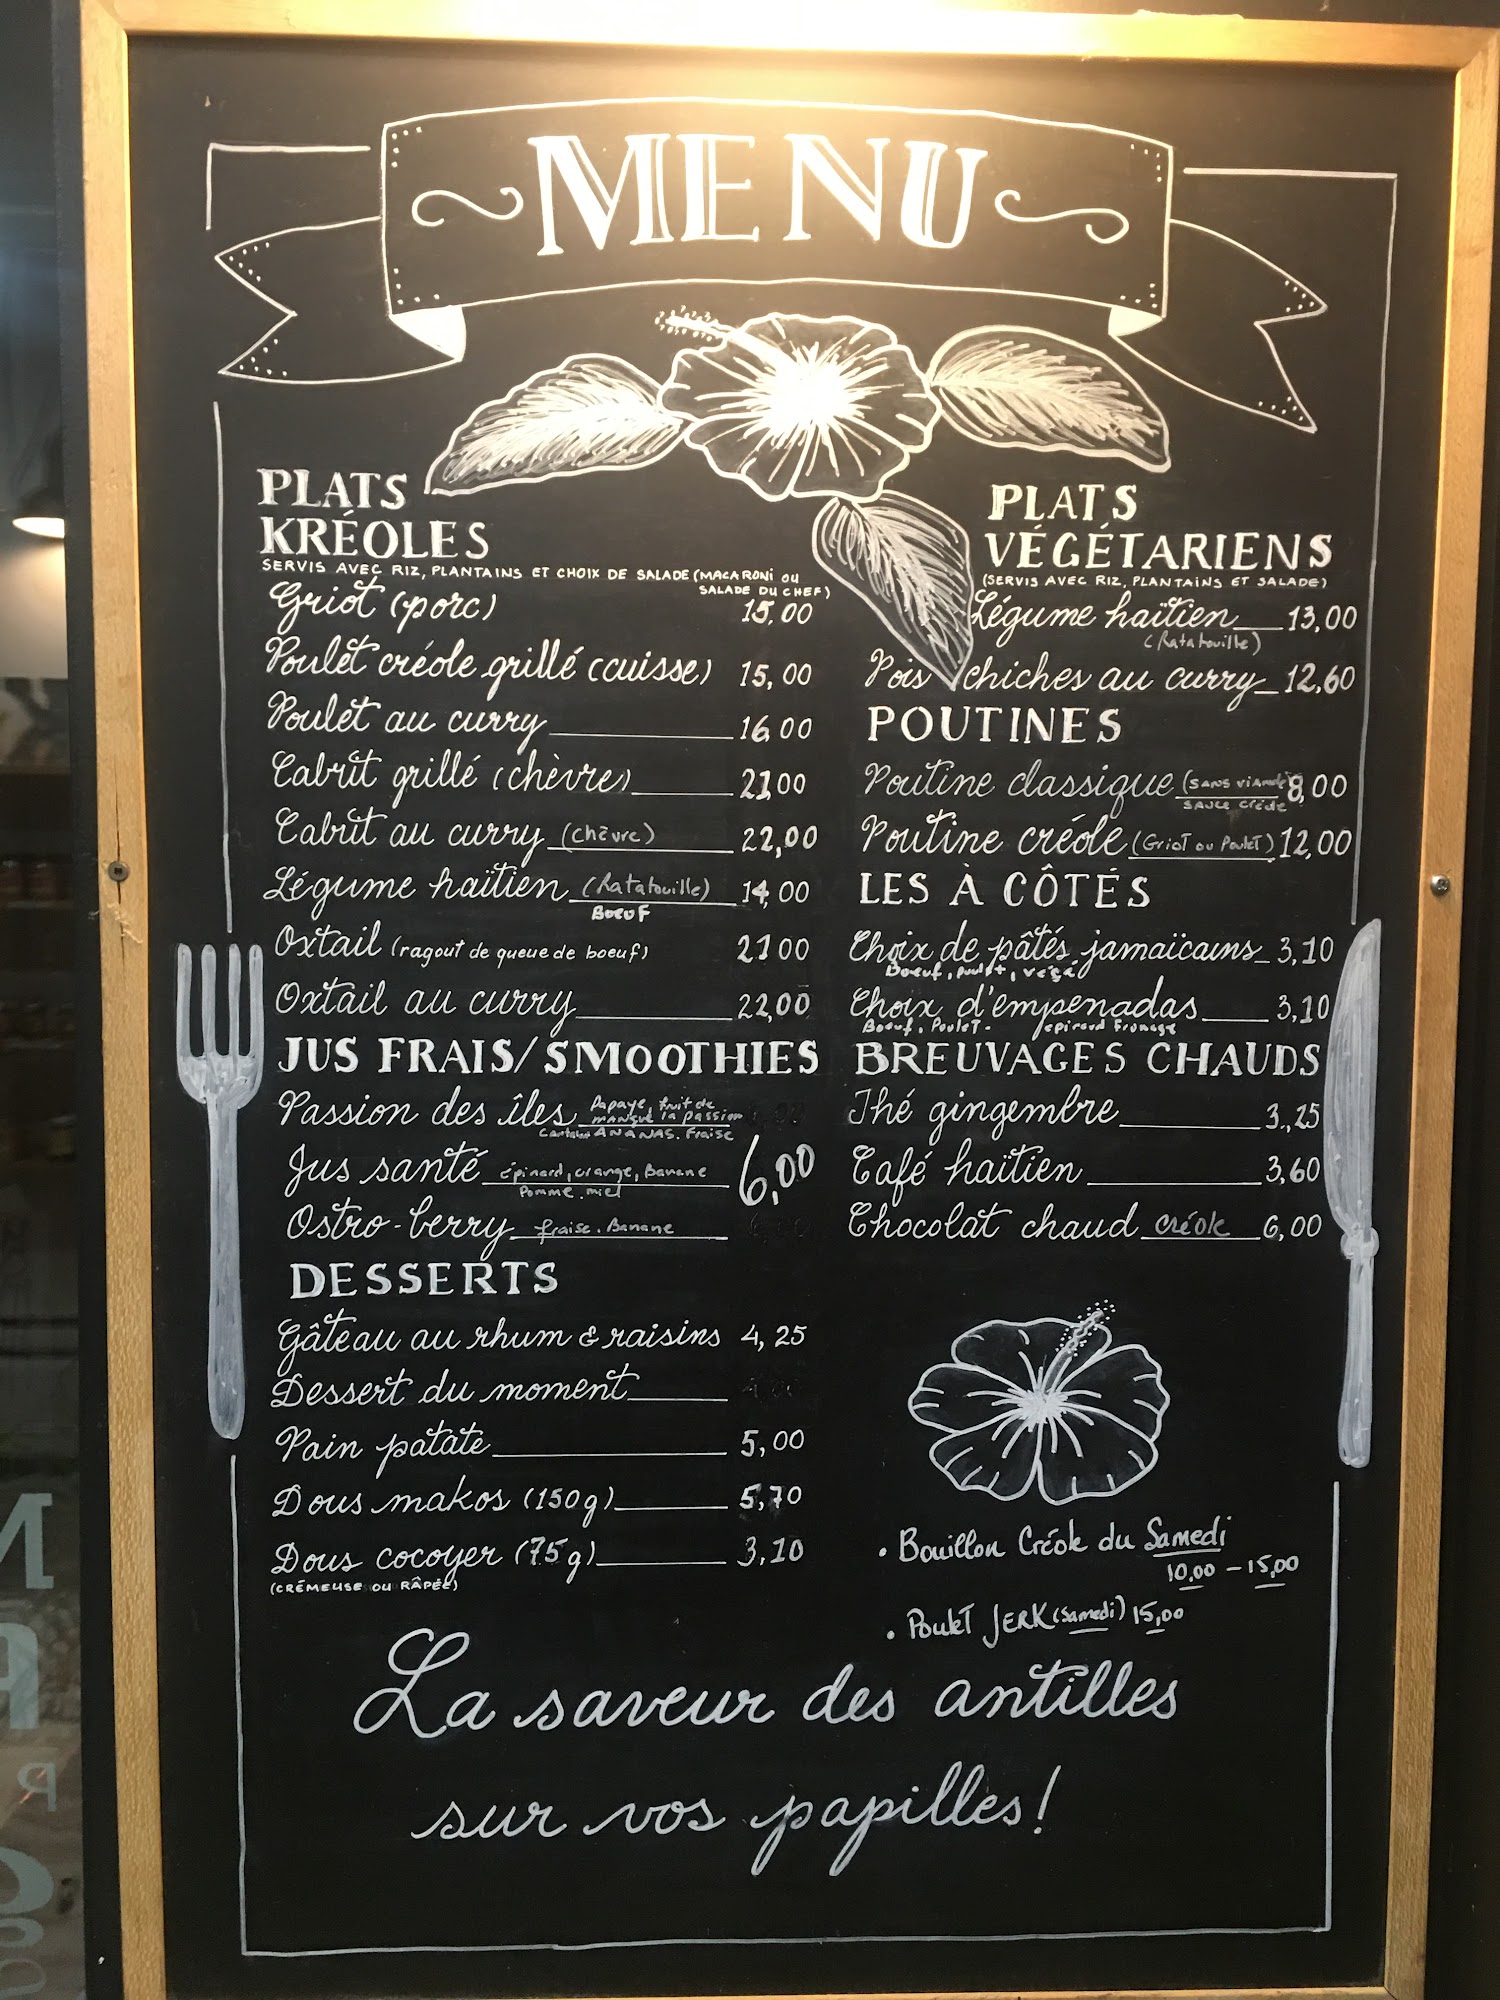 MENU
PLATS
KRÉOLES
SERVIS AVEC RIZ, PLANTAINS ET CHOIX DE SALADE (MACARONI OU
SALADE DU CHEF)
Griot (porc) 15,00
Poulet créole grillé (cuisse) 15,00
Poulet au curry 16,00
Cabrit grillé (chèvre) 21,00
Cabrit au curry (chèvre) 22,00
Légume haïtien (Ratatouille) 14,00
BOEUF
Oxtail (ragout de queue de boeuf) 21 00
Oxtail au curry 22,00
JUS FRAIS/SMOOTHIES
Passion des îles Papaye, fruit de
mangue la passion
ANANAS. Fraise
Jus santé épinard, orange, Banane 6,00
Pomme, miel
Ostro-berry fraise. Banane
DESSERTS
Gâteau au rhum & raisins 4,25
Dessert du moment
Pain patate 5,00
Dous makos (150g) 5,70
Dous cocoyer (75g) 3,10
(CRÉMEUSE OU RÂPÉE)
PLATS
VÉGÉTARIENS
(SERVIS AVEC RIZ, PLANTAINS ET SALADE)
Légume haïtien 13,00
(Ratatouille)
Pois chiches au curry 12,60
POUTINES
Poutine classique (SANS VIANDE 8,00
SAUCE Créole
Poutine créole (Griot ou Poulet) 12,00
LES À CÔTÉS
Choix de pâtés jamaïcains 3,10
Boeuf, poulet, végé
Choix d'empenadas 3,10
Boeuf, Poulet. épinard Fromage
BREUVAGES CHAUDS
Thé gingembre 3,25
Café haïtien 3,60
Chocolat chaud créole 6,00
• Bouillon Créole du Samedi
10,00 - 15,00
• Poulet JERK (Samedi) 15,00
La saveur des antilles
sur vos papilles!